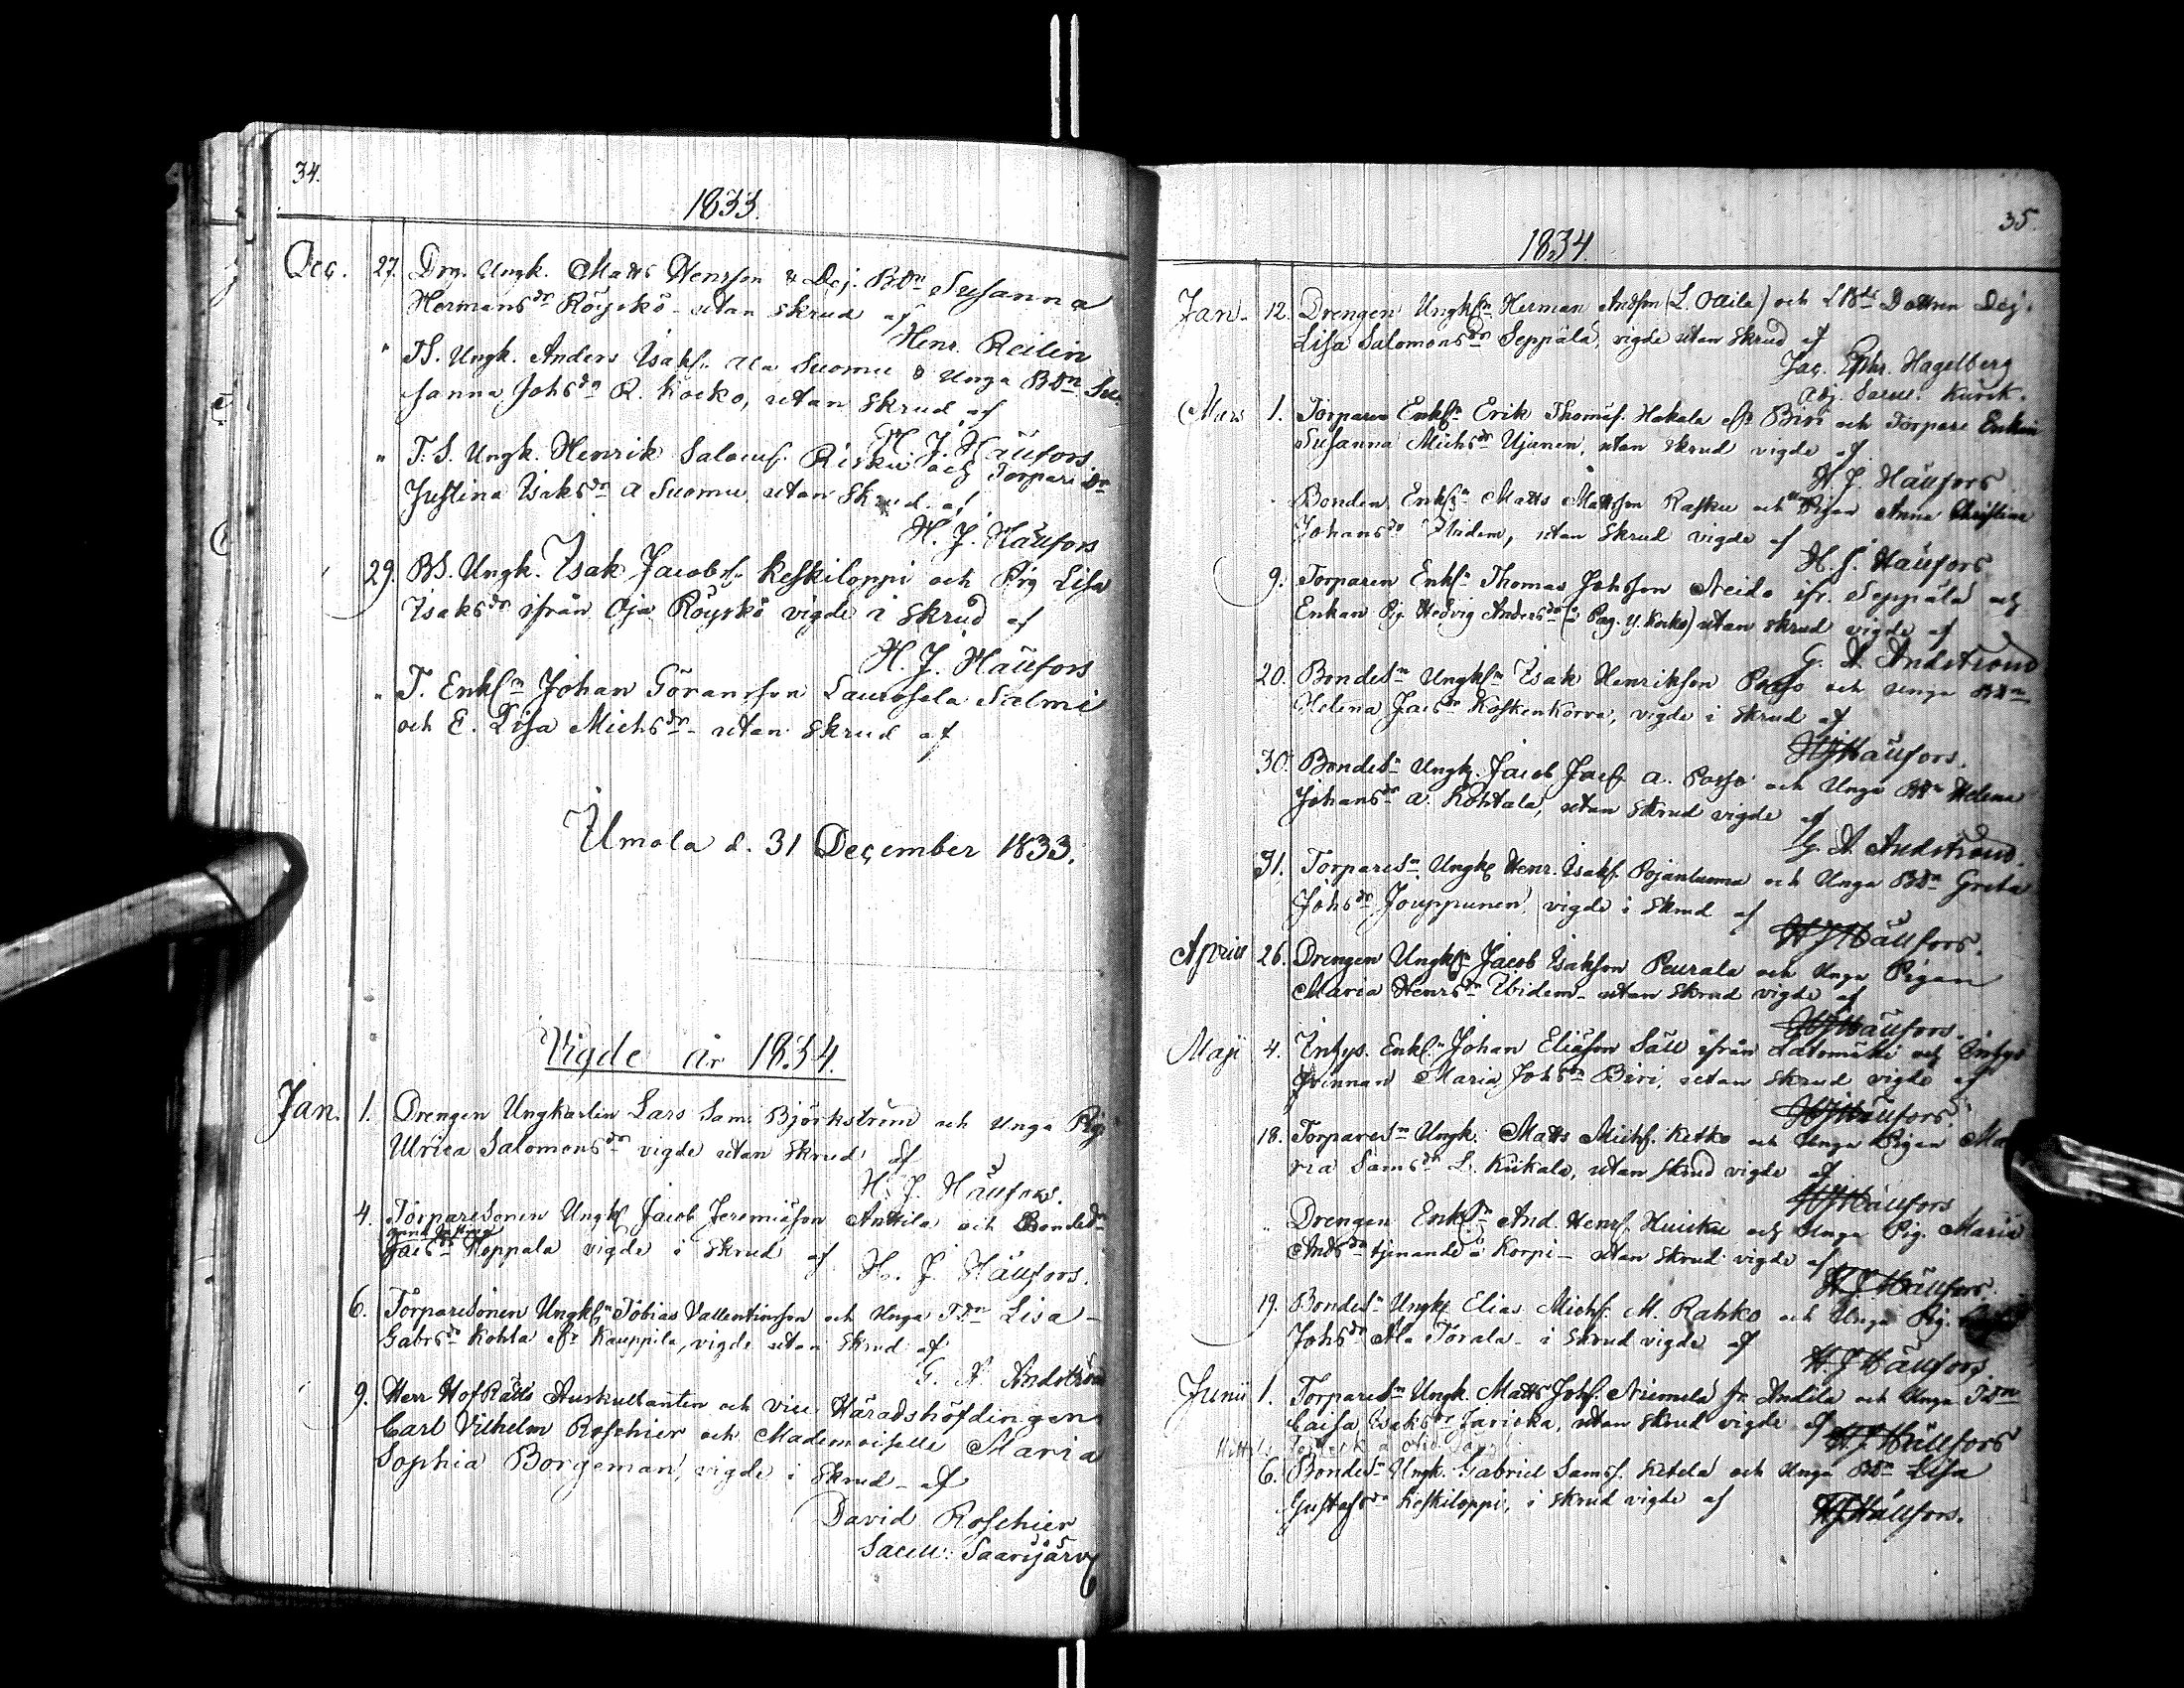 34.
1833.
Dec. 27. Drg. Ungk. Matts Hensson & Dej. BDn Susanna
Hermansdr Röyskö utan skrud af
Henr. Reilin
" TS. Ungk. Anders Isaks. Ala Suomu & Unga BDn Su-
sanna Johsdr R. Kocko, utan skrud af
H. J. Häufors
" T.S. Ungk. Henrik Salomss. Risku och Torpare Dn
Justina Isaksdr A Suomu utan skrud af
H. J. Häufors
29. BS. Ungk. Isak Jacobss. Keskiloppi och Pig Lisa
Isaksdr ifrån Oja Röyskö vigde i skrud af
H. J. Häufors
" T. Enkln Johan Göransson Laurosela Salmi
och E. Lisa Michsdr utan skrud af
Ilmola d. 31 December 1833.
Vigde år 1834.
Jan. 1. Drengen Ungkarlen Lars Sam. Björkström och Unga Pig
Ulrica Salomonsdr vigde utan skrud af
H. J. Häufors.
4. Torparesonen Ungk Jacob Jeremiasson Anttila och BondeDn
Jacsdr Hoppala vigde i skrud af
H. J. Häufors.
6. Torparesonen Ungkn Tobias Vallentinsson och Unga TDn Lisa
Gabrsdr Kohla ifr Kauppila, vigde utan skrud af
G. A. Andström
9. Herr HofRätts Auskultanten och vice Häradshöfdingen
Carl Vilhelm Roschier och Mademoiselle Maria
Sophia Borgeman, vigde i skrud af
David Roschier
Sacell: Saarijärvi
35
1834.
Jan. 12. Drengen Ungksn Herman Andsson (L. Ollila) och LBds Dottren Dej.
Lisa Salomonsdr Seppälä, vigde utan skrud af
Jac. Ephr. Hagelberg
Adj. Sacell. Kurik.
Mars 1. Torparen Enkln Erik Thomss. Hakala ifr Biri och Torpare Enkan
Susanna Michsdr Ujanen, utan skrud vigde af
H. J. Häufors
Bonden Enkln Matts Mattsson Rasku och Pigan Anna Christina
Johansdr Ibidem, utan skrud vigde af
H. J. Häufors
9. Torparen Enkln Thomas Johsson Neido ifr. Seppälä och
Enkan Pig. Hedvig Andersdr (å Pag. y. Kocko) utan skrud vigde af
G. A. Andström
20. Bondesn Ungksn Isak Henriksson Passo och Unga BDn
Helena Jacsdr Koskenkorva, vigde i skrud af
HJHäufors.
30. Bondesn Ungk. Jacob Jacss. A. Passo och Unga BDn Helena
Johansdr A. Kohtala, utan skrud vigde af
G. A. Andström.
31. Torparesn Ungk Henr. Isakss. Pojanluoma och Unga BDn Greta
Johsdr Jouppunen, vigde i skrud af
HJHäufors.
Aprill 26. Drengen Ungksn Jacob Isaksson Peurala och Unga Pigan
Maria Henrsdr Ibidem utan skrud vigde af
HJHäufors.
Maji 4. Inhys. Enkln Johan Eliasson Säll ifrån Latomäki och Inhys
qvinnan Maria Johsdr Biri, utan skrud vigde af
HJHäufors.
18. Torparesn Ungk. Matts Michss. Ketko och Unga Pigan Ma
ria Samsdr L. Kiikala, utan skrud vigde af
HJHäufors
" Drengen Enkln And. Henrss. Huisku och Unga Pig. Maria
Andsdr tjenande å Korpi utan skrud vigde af
HJHäufors.
19. Bondesn Ungk. Elias Michss. M. Rahko och Unga Pig.
Johsdr Ala Törala i skrud vigde af
HJHäufors
Junii 1. Torparesn Ungk. Matts Johss. Niemelä fr. Anttila och Unga TDn
Caisa Isaksdr Jaricka, utan skrud vigde af
HJHäufors
6. Bondesn Ungk. Gabriel Samss. Ketela och Unga BDn Lisa
Gustafsdr Keskiloppi, i skrud vigde af
HJHäufors.